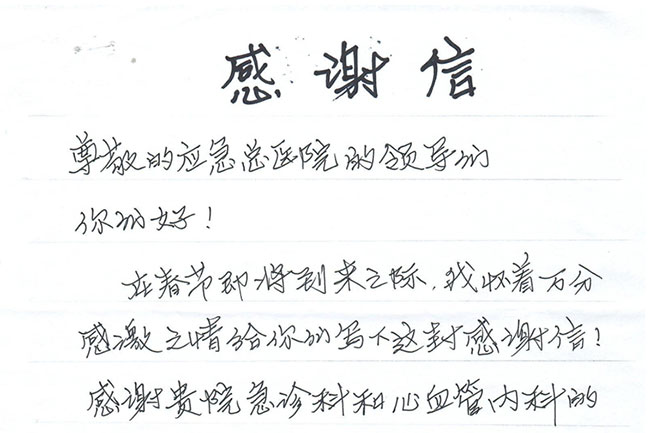 感谢信
尊敬的应急总医院的领导们
你们好！
在春节即将到来之际，我怀着万分
感激之情给你们写下这封感谢信！
感谢贵院急诊科和心血管内科的